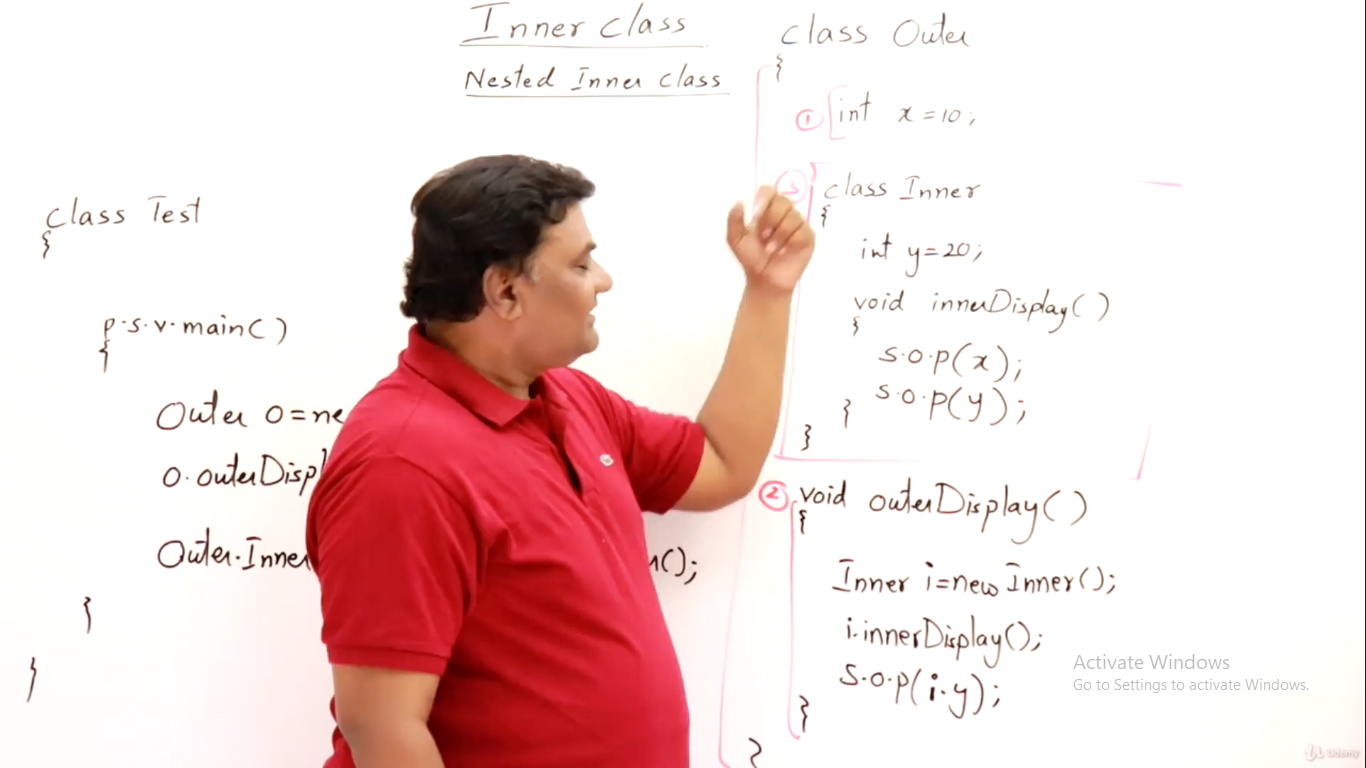 Inner Class
Nested Inner class
class Test
{
p.s.v.main()
{
Outer o=ne
o.outerDisp
Outer.Inner
();
}
}
class Outer
{
① int x=10;
③ class Inner
{
int y=20;
void innerDisplay()
{
s.o.p(x);
s.o.p(y);
}
}
② void outerDisplay()
{
Inner i=new Inner();
i.innerDisplay();
s.o.p(i.y);
}
}
Activate Windows
Go to Settings to activate Windows.
Udemy